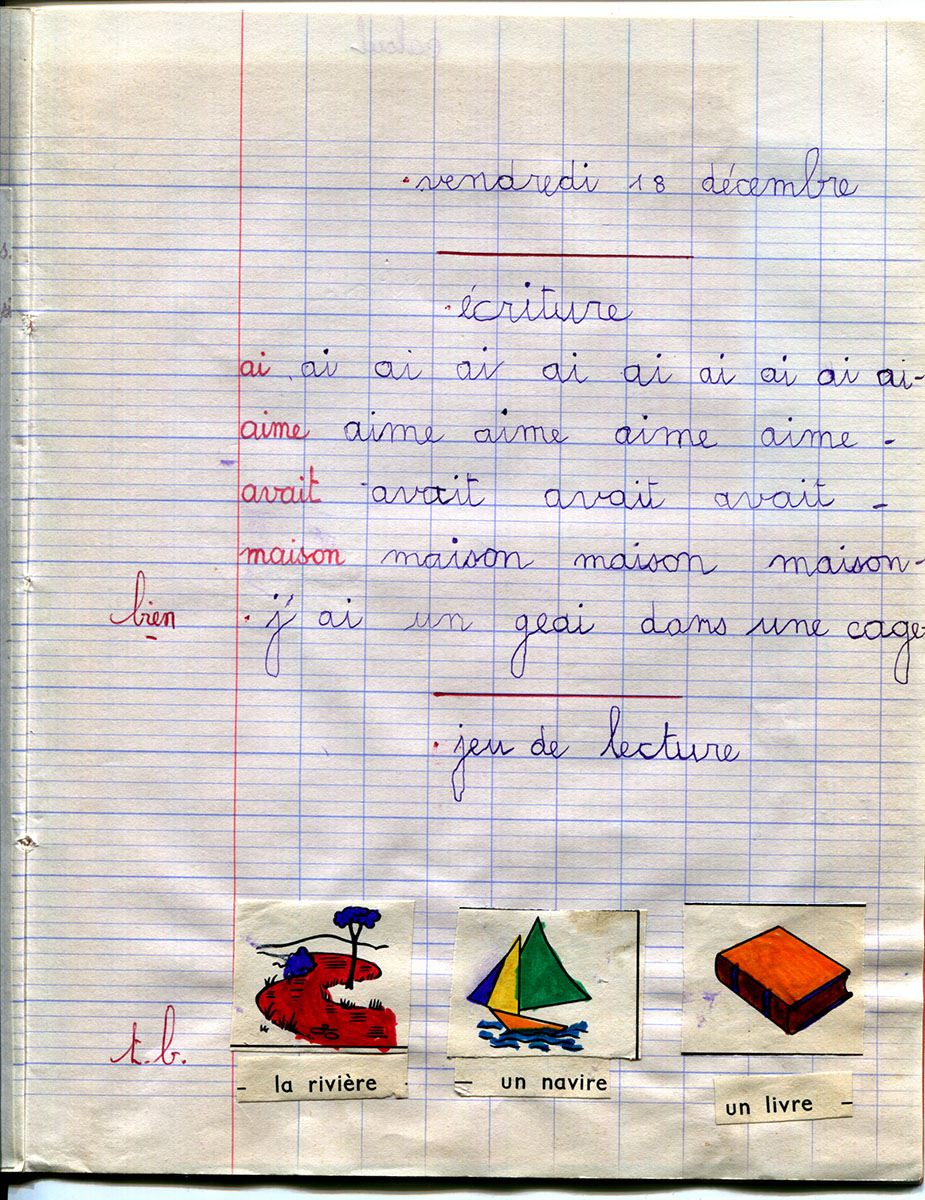 vendredi 18 décembre
écriture
ai ai ai ai ai ai ai ai ai ai-
aime aime aime aime aime -
avait avait avait avait -
maison maison maison maison-
bien j'ai un geai dans une cage
jeu de lecture
t.b.
- la rivière — un navire
un livre —